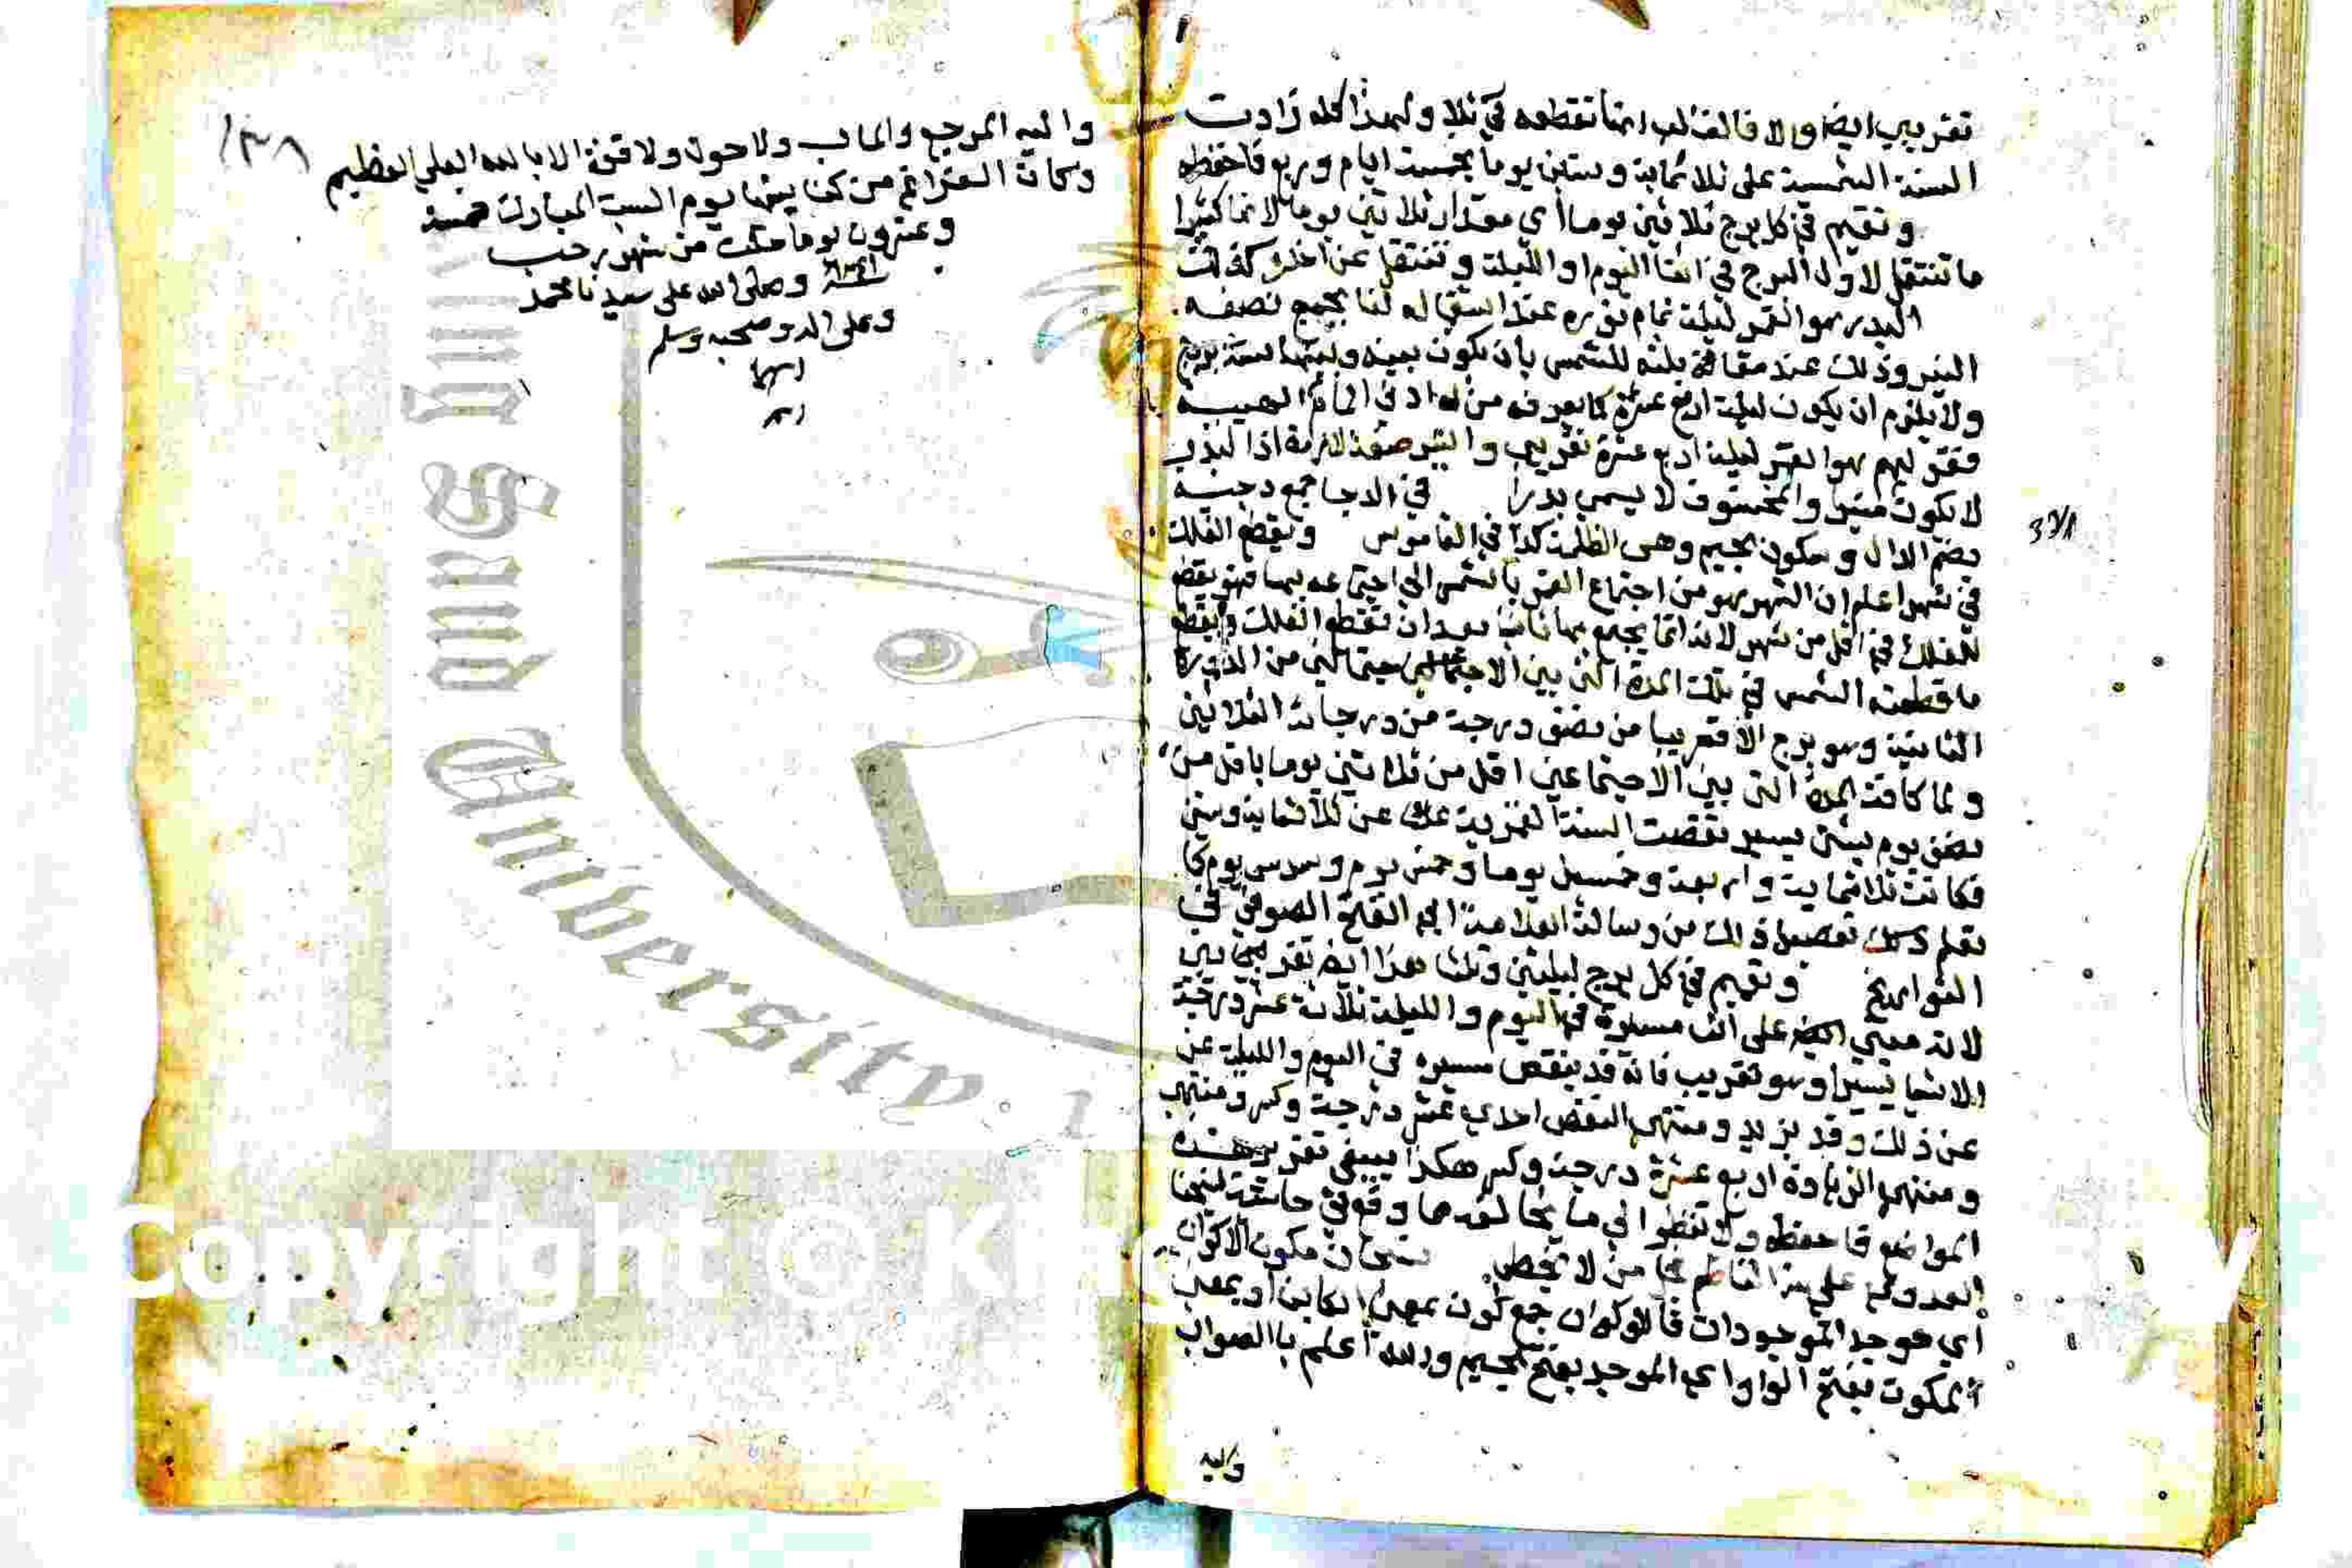 تقريبي ايضا والا فالغالب انما تقطعه في ولهذا كله زادت
السنة الشمسية على ثلاثماية وستين يوما بخمسة ايام وربع فاحفظه
وتقيم في كل برج ثلاثين يوما أي مقدار ثلاثين يوما لانها كثيرا
ما تنتقل لاول البرج في اثنا اليوم او الليلة وتنتقل عن اخره كذلك
البدر هو القمر ليلة تمام نوره عند استقباله لنا بجميع نصفه
النير وذلك عند مقابلته للشمس بان يكون بينه وبينها ستة بروج
ولا يلزم ان يكون ليلة اربع عشرة كما يعرفه من له ادني المام الهيية
فقولهم هو القمر ليلة اربع عشرة تقريبي والنير صفة لازمة اذا لبدر
لا يكون منير والمخسوف لا يسمي بدرا في الدجا جمع دجية
بضم الدال وسكون الجيم وهى الظلمة كذا في القاموس وتقطع الفلك
في شهر اعلم ان الشهر هو من اجتماع القمر بالشمس الي اجتماعه بها فهو يقطع
الفلك في اقل من شهر لانه انما يجتمع بها ثانيا بعد ان تقطع الفلك ويقطع
ما قطعته الشمس في تلك المدة التي بين الاجتماعين من الدورة
الثانية وهو برج الا قريبا من نصف درجة من درجات الثلاثين
ولما كانت المدة التي بين الاجتماعين اقل من ثلاثين يوما باقل من
نصف يوم بشئ يسير نقصت السنة القمرية عن ثلاثماية وستين
فكانت ثلاثماية واربعة وخمسين يوما وخمس يوم وسدس يوم كما
تفصيل ذلك من رسالة العلامة ابي الفتح الصوفي في
التواريخ وتقيم في كل برج ليلتين وثلثا هذا ايضا تقريبي
لانه مبني ايضا على ان مسيره في اليوم والليلة ثلاثة عشر درجة
الا شيا يسيرا وهو تقريب فانه قد ينقص مسيره في اليوم والليلة عن
عن ذلك وقد يزيد ومنتهي النقص احدي عشر درجة وكسر ومنتهي
ومنتهي الزيادة اربع عشرة درجة وكسر هكذا ينبغي تقرير هذه
المواضع فاحفظه ولا تنظر الي ما يخالفه مما وقع في حاشية شيخنا
العدوي علي هذا سبحان مكون الاكوان
أي موجد الموجودات فالاكوان جمع كون بمعني الكاين او بمعني
المكون بفتح الواو اي الموجد بفتح الجيم والله أعلم بالصواب
واليه
واليه المرجع والماب ولا حول ولا قوة الا بالله العلي العظيم
وكان الفراغ من كتابتها يوم السبت المبارك خمسة
وعشرون يوما خلت من شهر رجب
وصلى الله على سيدنا محمد
وعلى اله وصحبه وسلم
١٣٨
University
Copyright © Ki